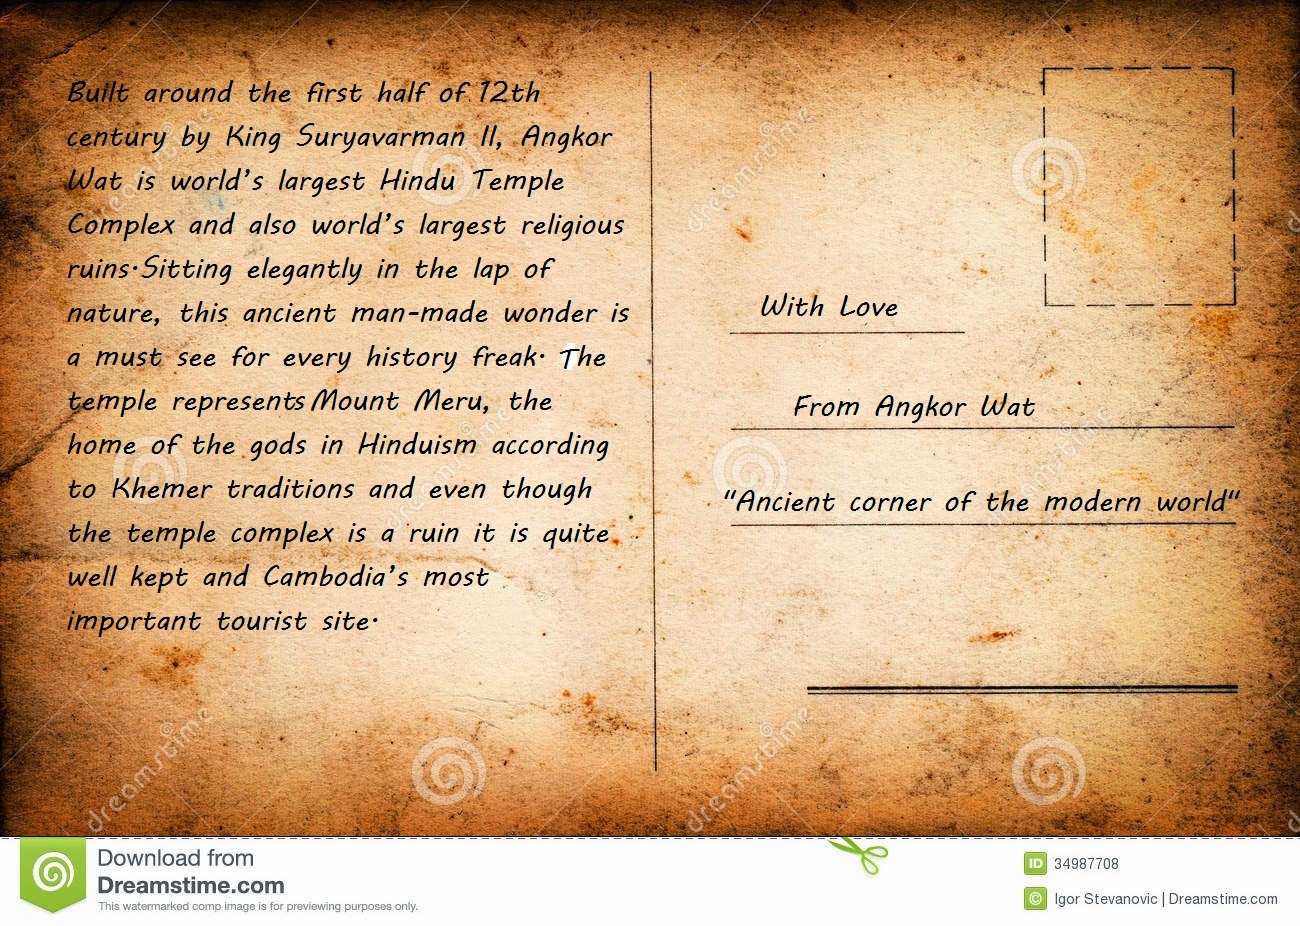 Built around the first half of 12th
century by King Suryavarman II, Angkor
Wat is world's largest Hindu Temple
Complex and also world's largest religious
ruins.Sitting elegantly in the lap of
nature, this ancient man-made wonder is
a must see for every history freak. The
temple represents Mount Meru, the
home of the gods in Hinduism according
to Khemer traditions and even though
the temple complex is a ruin it is quite
well kept and Cambodia's most
important tourist site.
With Love
From Angkor Wat
"Ancient corner of the modern world"
dreamstime
dreamstime
dreamstime
dreamstime
dreamstime
dreamstime
dreamstime
Download from
Dreamstime.com
This watermarked comp image is for previewing purposes only.
ID 34987708
© Igor Stevanovic | Dreamstime.com